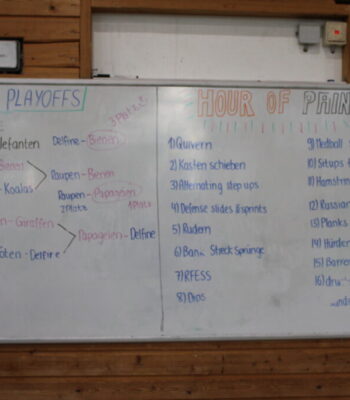 PLAYOFFS
3.Platz
elefanten
Delfine - Bienen
Bienen
Koalas
Raupen - Bienen
Raupen - Papageien
2.Platz
1.Platz
Giraffen
Papageien - Delfine
öten - Delfine
HOUR OF PAIN
1) Quivern
2) Kasten schieben
3) Alternating step ups
4) Defense slides & sprints
5) Rudern
6) Bank Streck Sprünge
7) RFESS
8) Dips
9) Medball
10) Situps
11) Hamstring
12) Russian
13) Planks
14) Hürden
15) Barren
16)